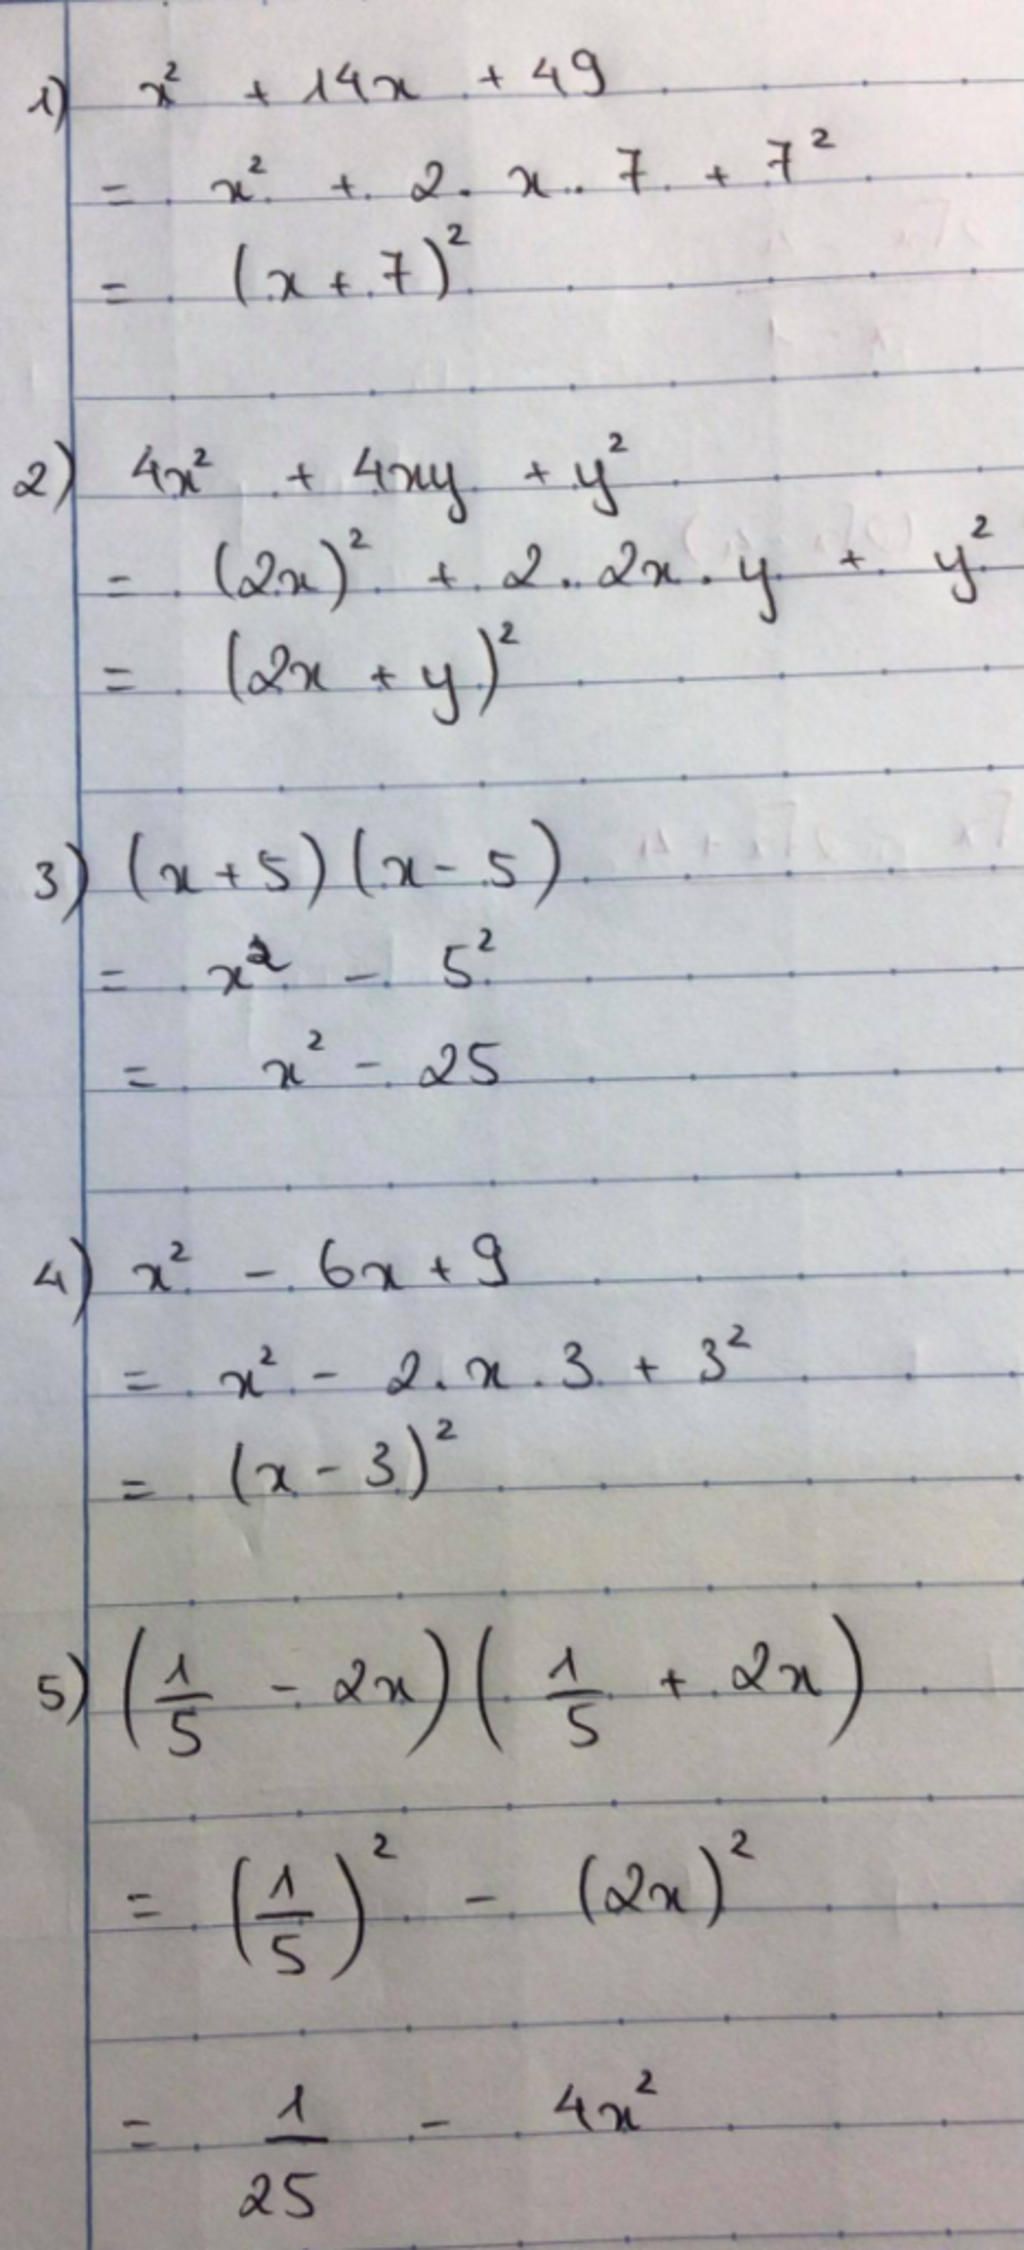 1) x² + 14x + 49
= x² + 2. x. 7 + 7²
= (x + 7)²
2) 4x² + 4xy + y²
= (2x)² + 2. 2x. y + y²
= (2x + y)²
3) (x + 5)(x - 5)
= x² - 5²
= x² - 25
4) x² - 6x + 9
= x² - 2. x. 3 + 3²
= (x - 3)²
5) (1/5 - 2x)(1/5 + 2x)
= (1/5)² - (2x)²
= 1/25 - 4x²